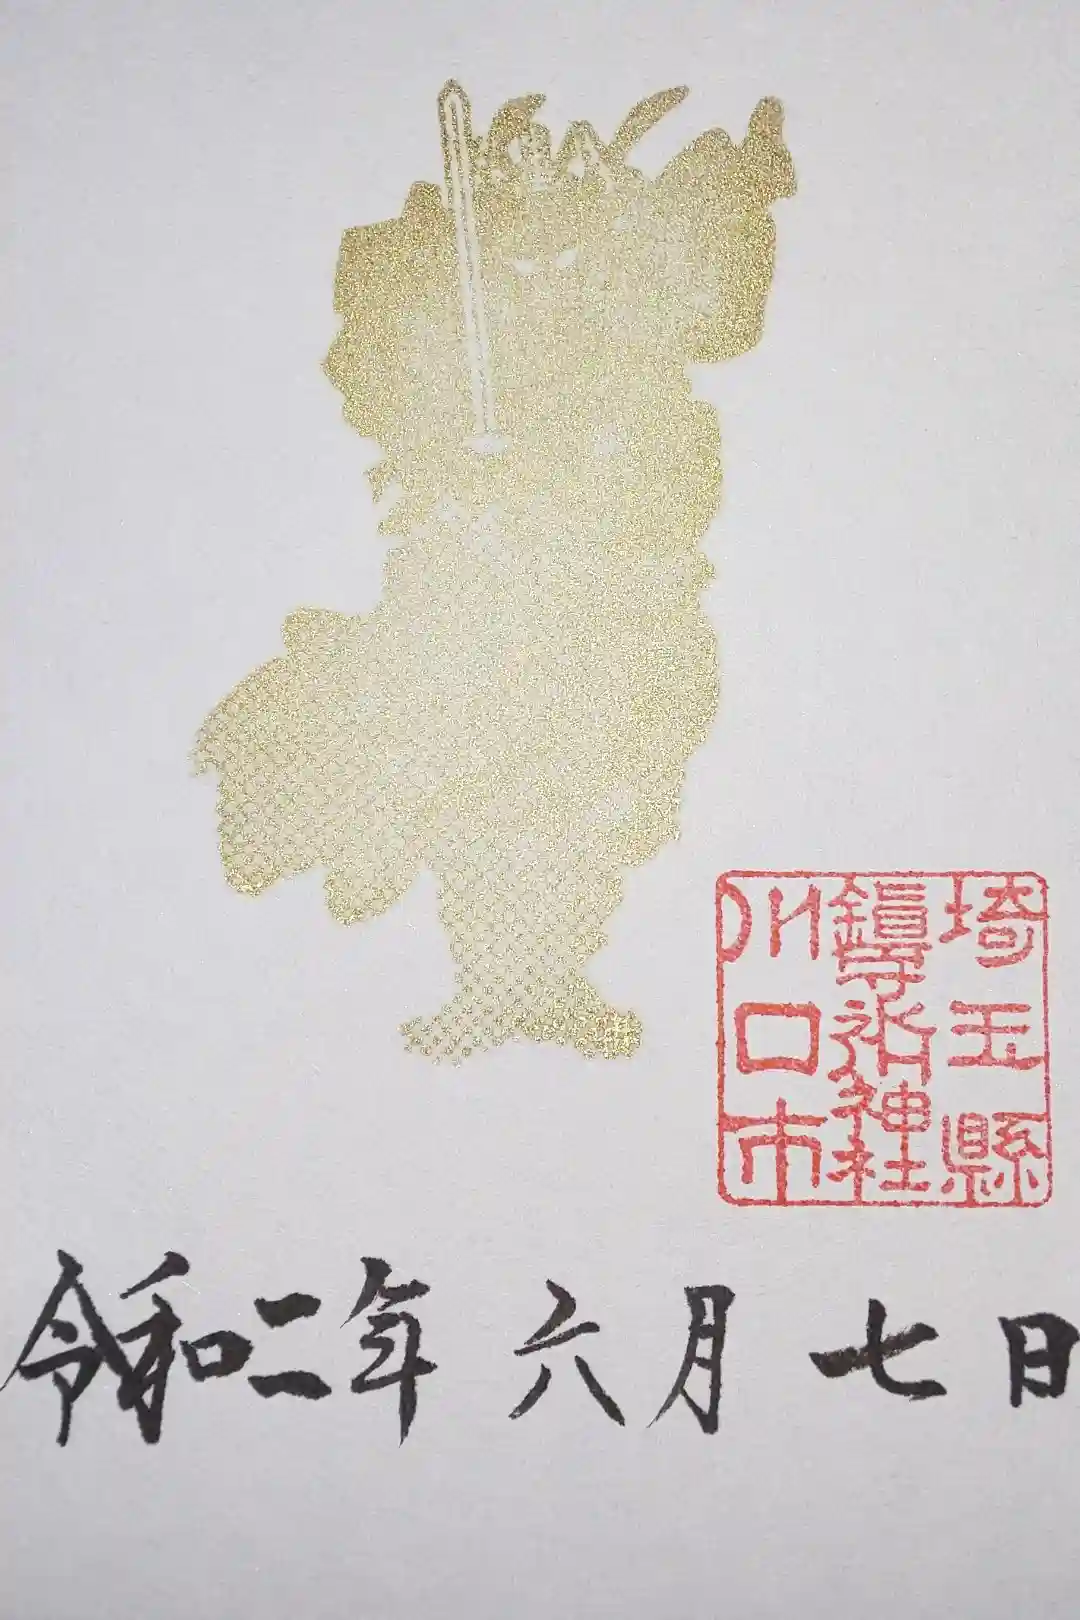 埼玉縣
鎮守氷川神社
川口市
令和二年 六月 七日